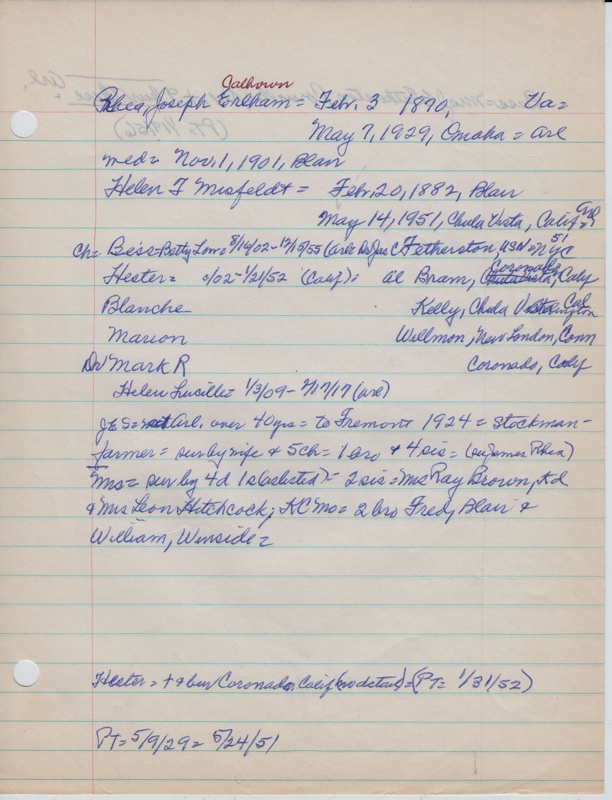 Calhoun
Rhea, Joseph Earlham = Febr. 3 1870, Va =
May 7, 1929, Omaha = Arl
med = Nov. 1, 1901, Blair
Helen F Misfeldt = Febr 20, 1882, Blair
May 14, 1951, Chula Vista, Calif = Arl
Ch = Bess = Betty Lou = 8/14/02 - 12/15/55 (Arl = Dr Jas C Fetherston, USN = NYC 51
Hester = /02 - 1/21/52 (Calif) = Al Bram, Coronado, Calif
Blanche Kelly, Chula Vista Cal
Marion Willmon, New London, Conn
Dr Mark R Coronado, Calif
Helen Lucille = 1/3/09 - 7/17/17 (Arl)
JES = Arl. over 40 yrs = to Fremont 1924 = stockman -
farmer = sur by wife & 5 ch = 1 bro & 4 sis = (James Rhea)
Mrs = sur by 4 d 1 s (as listed) = 2 sis = Mrs Ray Brown, Kd
& Mrs Leon Hitchcock, KC Mo = 2 bro Fred, Blair &
William, Winside =
Hester = + & bur Coronado, Calif (no details) = (PT = 1/31/52)
PT = 5/9/29 = 5/24/51